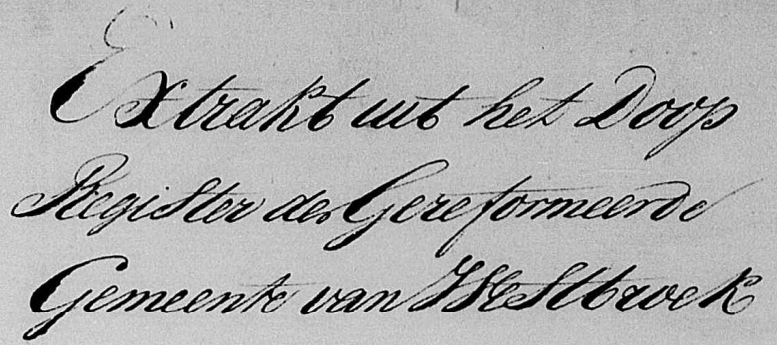 Extrakt uit het Doop
Register der Gereformeerde
Gemeente van Westbroek